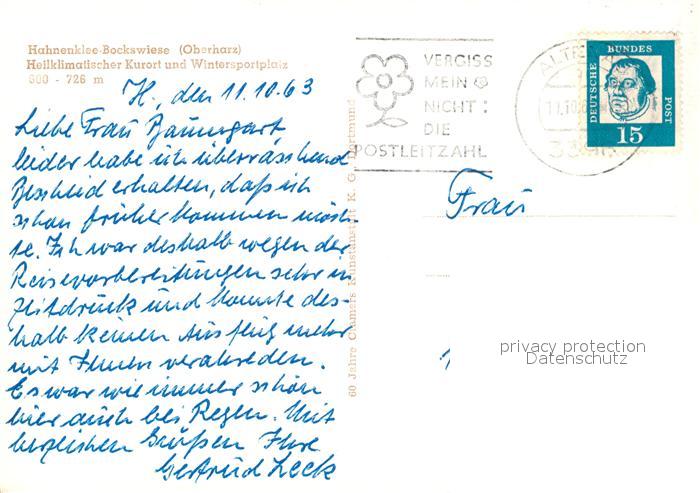 Hahnenklee-Bockswiese (Oberharz)
Heilklimatischer Kurort und Wintersportplatz
600 - 726 m
H., den 11.10.63
Liebe Frau Baumgart,
leider habe ich überraschend
Bescheid erhalten, daß ich
schon früher kommen möch-
te. Ich war deshalb wegen der
Reisevorbereitungen sehr in
Zeitdruck und konnte des-
halb keinen Ausflug mehr
mit Ihnen verabreden.
Es war wie immer schön
hier auch bei Regen. Mit
herzlichen Grüßen Ihre
Gertrud Leck
60 Jahre Cramers Kunstanstalt K. G., Dortmund
VERGISS
MEIN
NICHT:
DIE
POSTLEITZAHL
11.10.6
DEUTSCHE
BUNDES
POST
15
Frau
privacy protection
Datenschutz